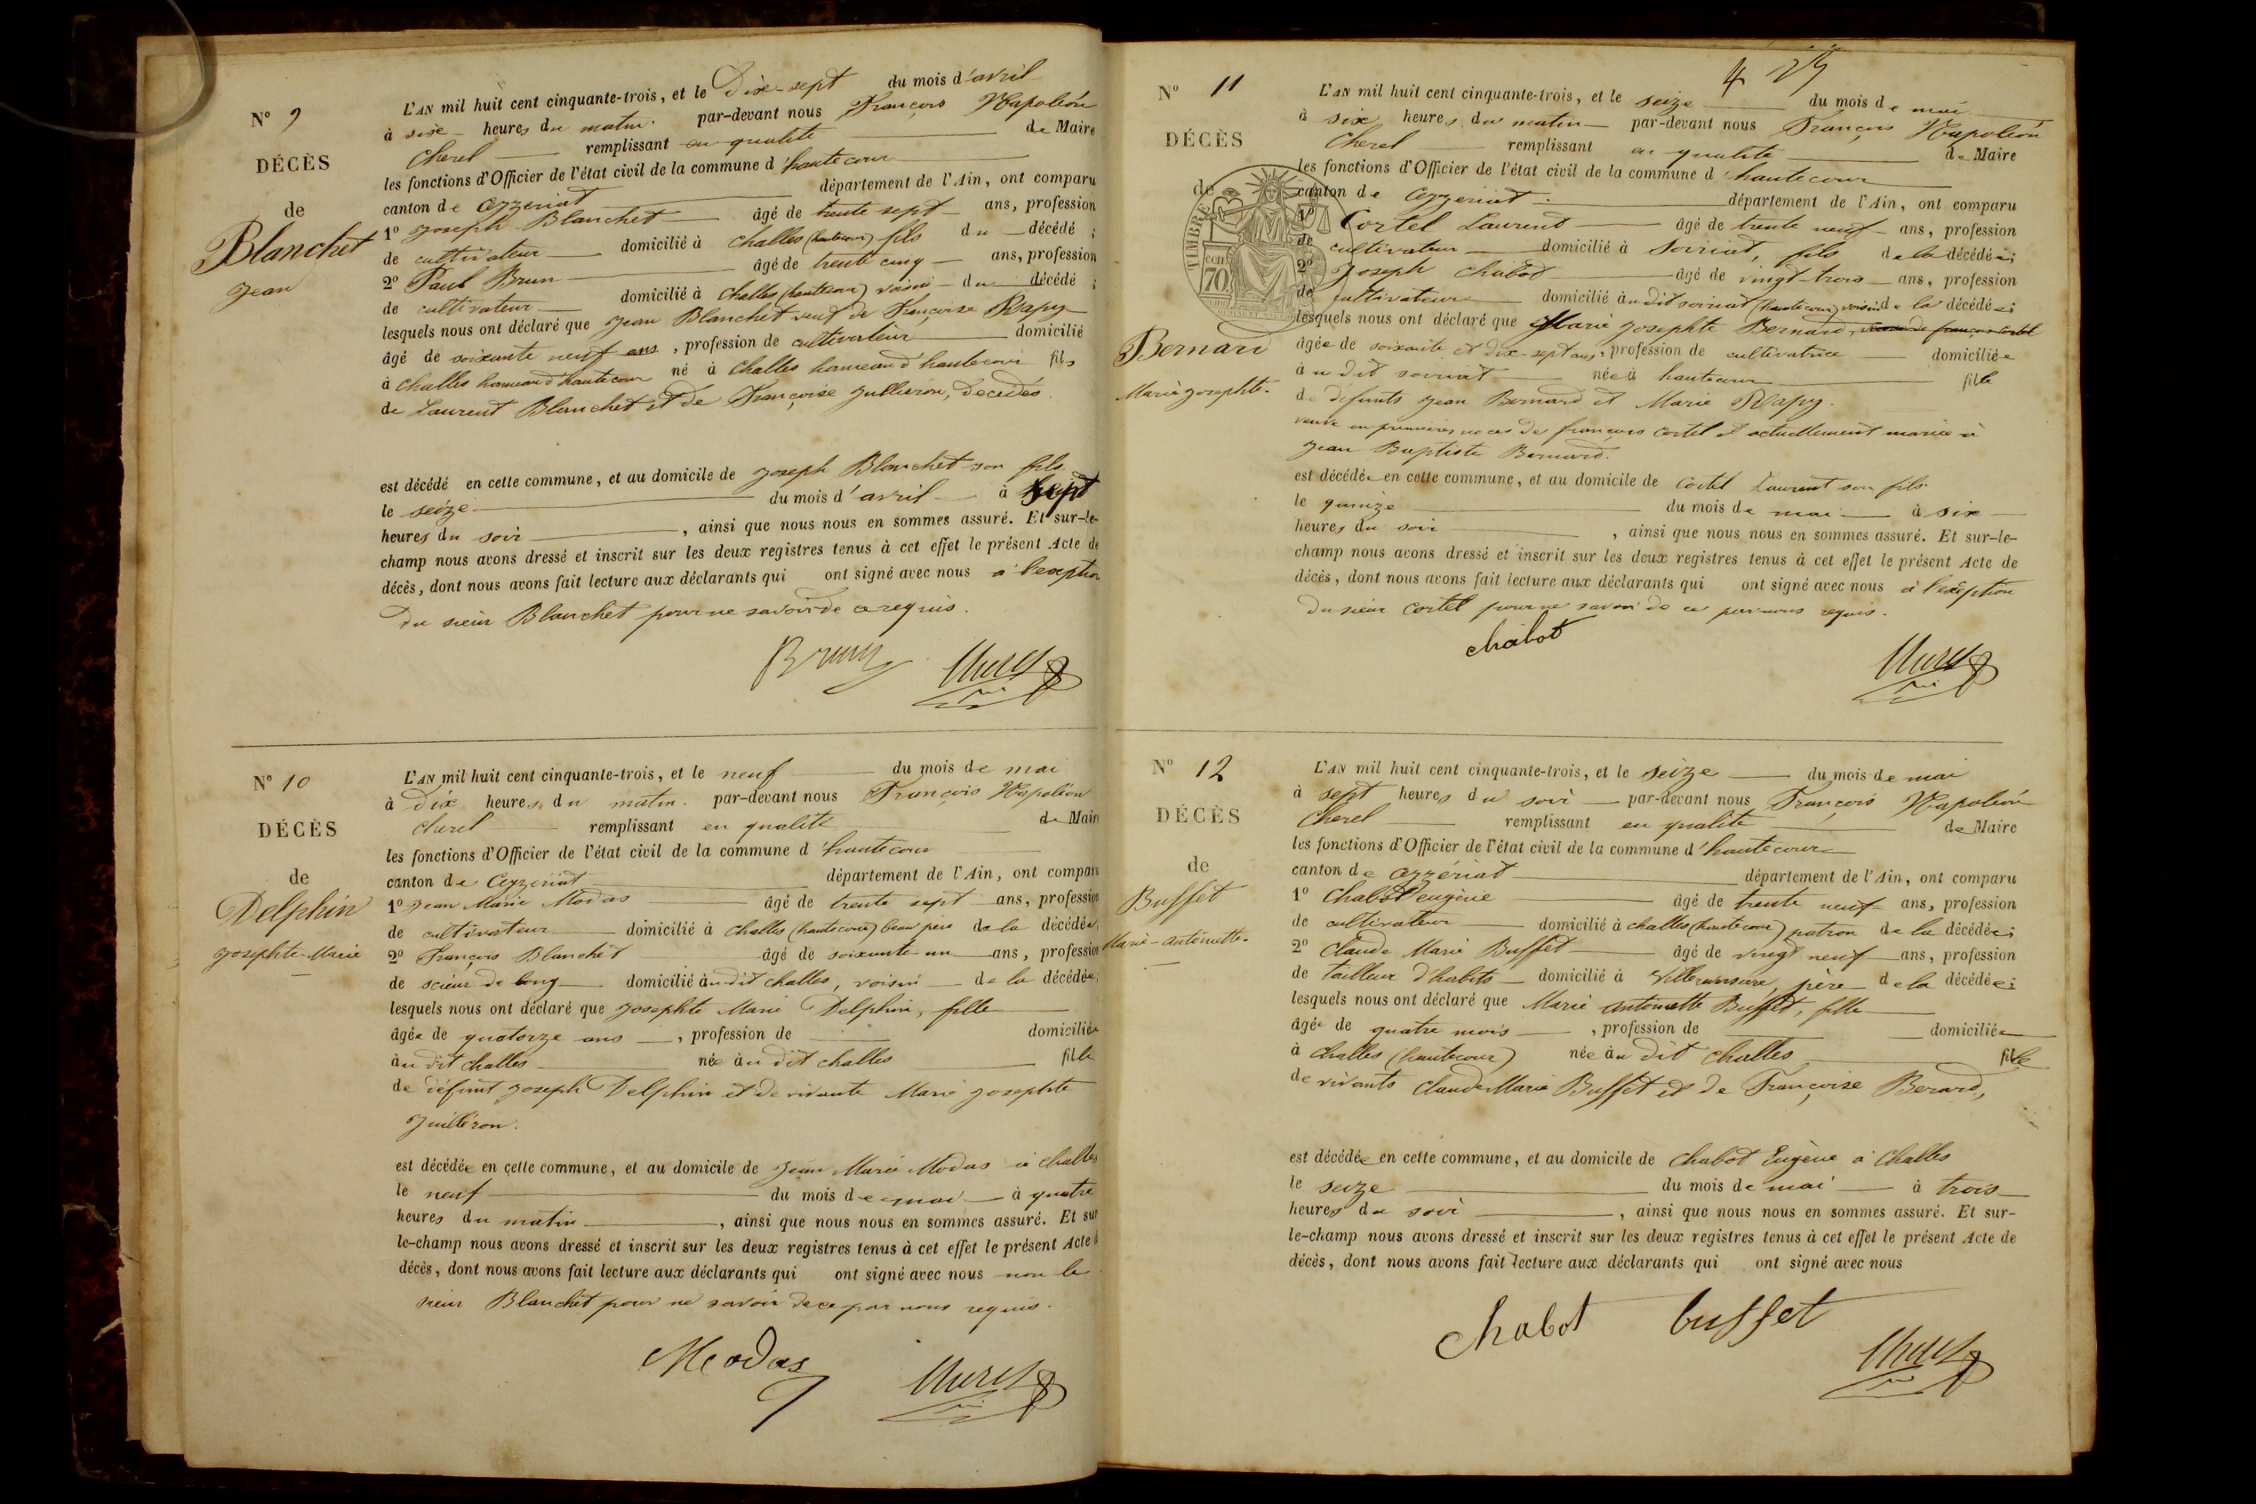 N° 9
DÉCÈS
de
Blanchet
Jean
L'AN mil huit cent cinquante-trois, et le Dix-sept du mois d'avril
à six heures du matin. par-devant nous François Napoléon
Cherel remplissant en qualité de Maire
les fonctions d'Officier de l'état civil de la commune d'hautecour
canton de Ceyzeriat département de l'Ain, ont comparu
1° Joseph Blanchet âgé de trente sept ans, profession
de cultivateur domicilié à Challes (hautecour) fils du décédé ;
2° Paul Brun âgé de trente cinq ans, profession
de cultivateur domicilié à Challes (hautecour) voisin du décédé ;
lesquels nous ont déclaré que Jean Blanchet veuf de Françoise Rapy
âgé de soixante neuf ans, profession de cultivateur domicilié
à Challes hameau d'hautecour né à Challes hameau d'hautecour fils
de Laurent Blanchet et de Françoise Jullieron, décédés.
est décédé en cette commune, et au domicile de Joseph Blanchet son fils
le seize du mois d'avril à sept
heures du soir, ainsi que nous nous en sommes assuré. Et sur-le-
champ nous avons dressé et inscrit sur les deux registres tenus à cet effet le présent Acte de
décès, dont nous avons fait lecture aux déclarants qui ont signé avec nous à l'exception
du sieur Blanchet pour ne savoir de ce requis.
Brun
N° 10
DÉCÈS
de
Delphin
Josephte-Marie
L'AN mil huit cent cinquante-trois, et le neuf du mois de mai
à Dix heures du matin. par-devant nous François Napoléon
Cherel remplissant en qualité de Maire
les fonctions d'Officier de l'état civil de la commune d'hautecour
canton de Ceyzeriat département de l'Ain, ont comparu
1° Jean Marie Modas âgé de trente sept ans, profession
de cultivateur domicilié à Challes (hautecour) beau père de la décédée ;
2° François Blanchet âgé de soixante un ans, profession
de scieur de long domicilié au dit challes, voisin de la décédée ;
lesquels nous ont déclaré que Josephte Marie Delphin, fille
âgée de quatorze ans, profession de domiciliée
au dit challes née au dit challes fille
de défunt Joseph Delphin et de vivante Marie Josephte
Juilliron.
est décédée en cette commune, et au domicile de Jean Marie Modas à Challes
le neuf du mois de mai à quatre
heures du matin, ainsi que nous nous en sommes assuré. Et sur
le-champ nous avons dressé et inscrit sur les deux registres tenus à cet effet le présent Acte d
décès, dont nous avons fait lecture aux déclarants qui ont signé avec nous non le
sieur Blanchet pour ne savoir de ce par nous requis.
Modas
N° 11
DÉCÈS
de
Bernard
Marie Josephte.
TIMBRE
70
L'AN mil huit cent cinquante-trois, et le seize du mois de mai
à six heures du matin par-devant nous François Napoléon
Cherel remplissant en qualité de Maire
les fonctions d'Officier de l'état civil de la commune d'hautecour
canton de Ceyzeriat département de l'Ain, ont comparu
1° Cortel Laurent âgé de trente neuf ans, profession
de cultivateur domicilié à Soiriat, fils de la décédée ;
2° Joseph Chabot âgé de vingt-trois ans, profession
de cultivateur domicilié au dit soiriat (hautecour) voisin de la décédée ;
lesquels nous ont déclaré que Marie Josephte Bernard, veuve de françois Cortel
âgée de soixante et dix-sept ans, profession de cultivatrice domiciliée
au dit soiriat née à hautecour fille
de défunts Jean Bernard et Marie Rapy.
veuve en premières noces de françois Cortel et actuellement mariée à
Jean Baptiste Bernard.
est décédée en cette commune, et au domicile de Cortel Laurent son fils.
le quinze du mois de mai à six
heures du soir, ainsi que nous nous en sommes assuré. Et sur-le-
champ nous avons dressé et inscrit sur les deux registres tenus à cet effet le présent Acte de
décès, dont nous avons fait lecture aux déclarants qui ont signé avec nous à l'exception
du sieur Cortel pour ne savoir de ce par nous requis.
chabot
N° 12
DÉCÈS
de
Buffet
Marie-Antoinette.
L'AN mil huit cent cinquante-trois, et le seize du mois de mai
à sept heures du soir par-devant nous François Napoléon
Cherel remplissant en qualité de Maire
les fonctions d'Officier de l'état civil de la commune d'hautecour
canton de Ceyzériat département de l'Ain, ont comparu
1° Chabot eugène âgé de trente neuf ans, profession
de cultivateur domicilié à challes (hautecour) patron de la décédée ;
2° Claude Marie Buffet âgé de vingt neuf ans, profession
de tailleur d'habits domicilié à Villereversure, père de la décédée ;
lesquels nous ont déclaré que Marie Antoinette Buffet, fille
âgée de quatre mois, profession de domiciliée
à challes (hautecour) née au dit challes fille
de vivants Claude Marie Buffet et de Françoise Berard,
est décédée en cette commune, et au domicile de Chabot Eugène à Challes
le seize du mois de mai à trois
heures du soir, ainsi que nous nous en sommes assuré. Et sur-
le-champ nous avons dressé et inscrit sur les deux registres tenus à cet effet le présent Acte de
décès, dont nous avons fait lecture aux déclarants qui ont signé avec nous
chabot buffet